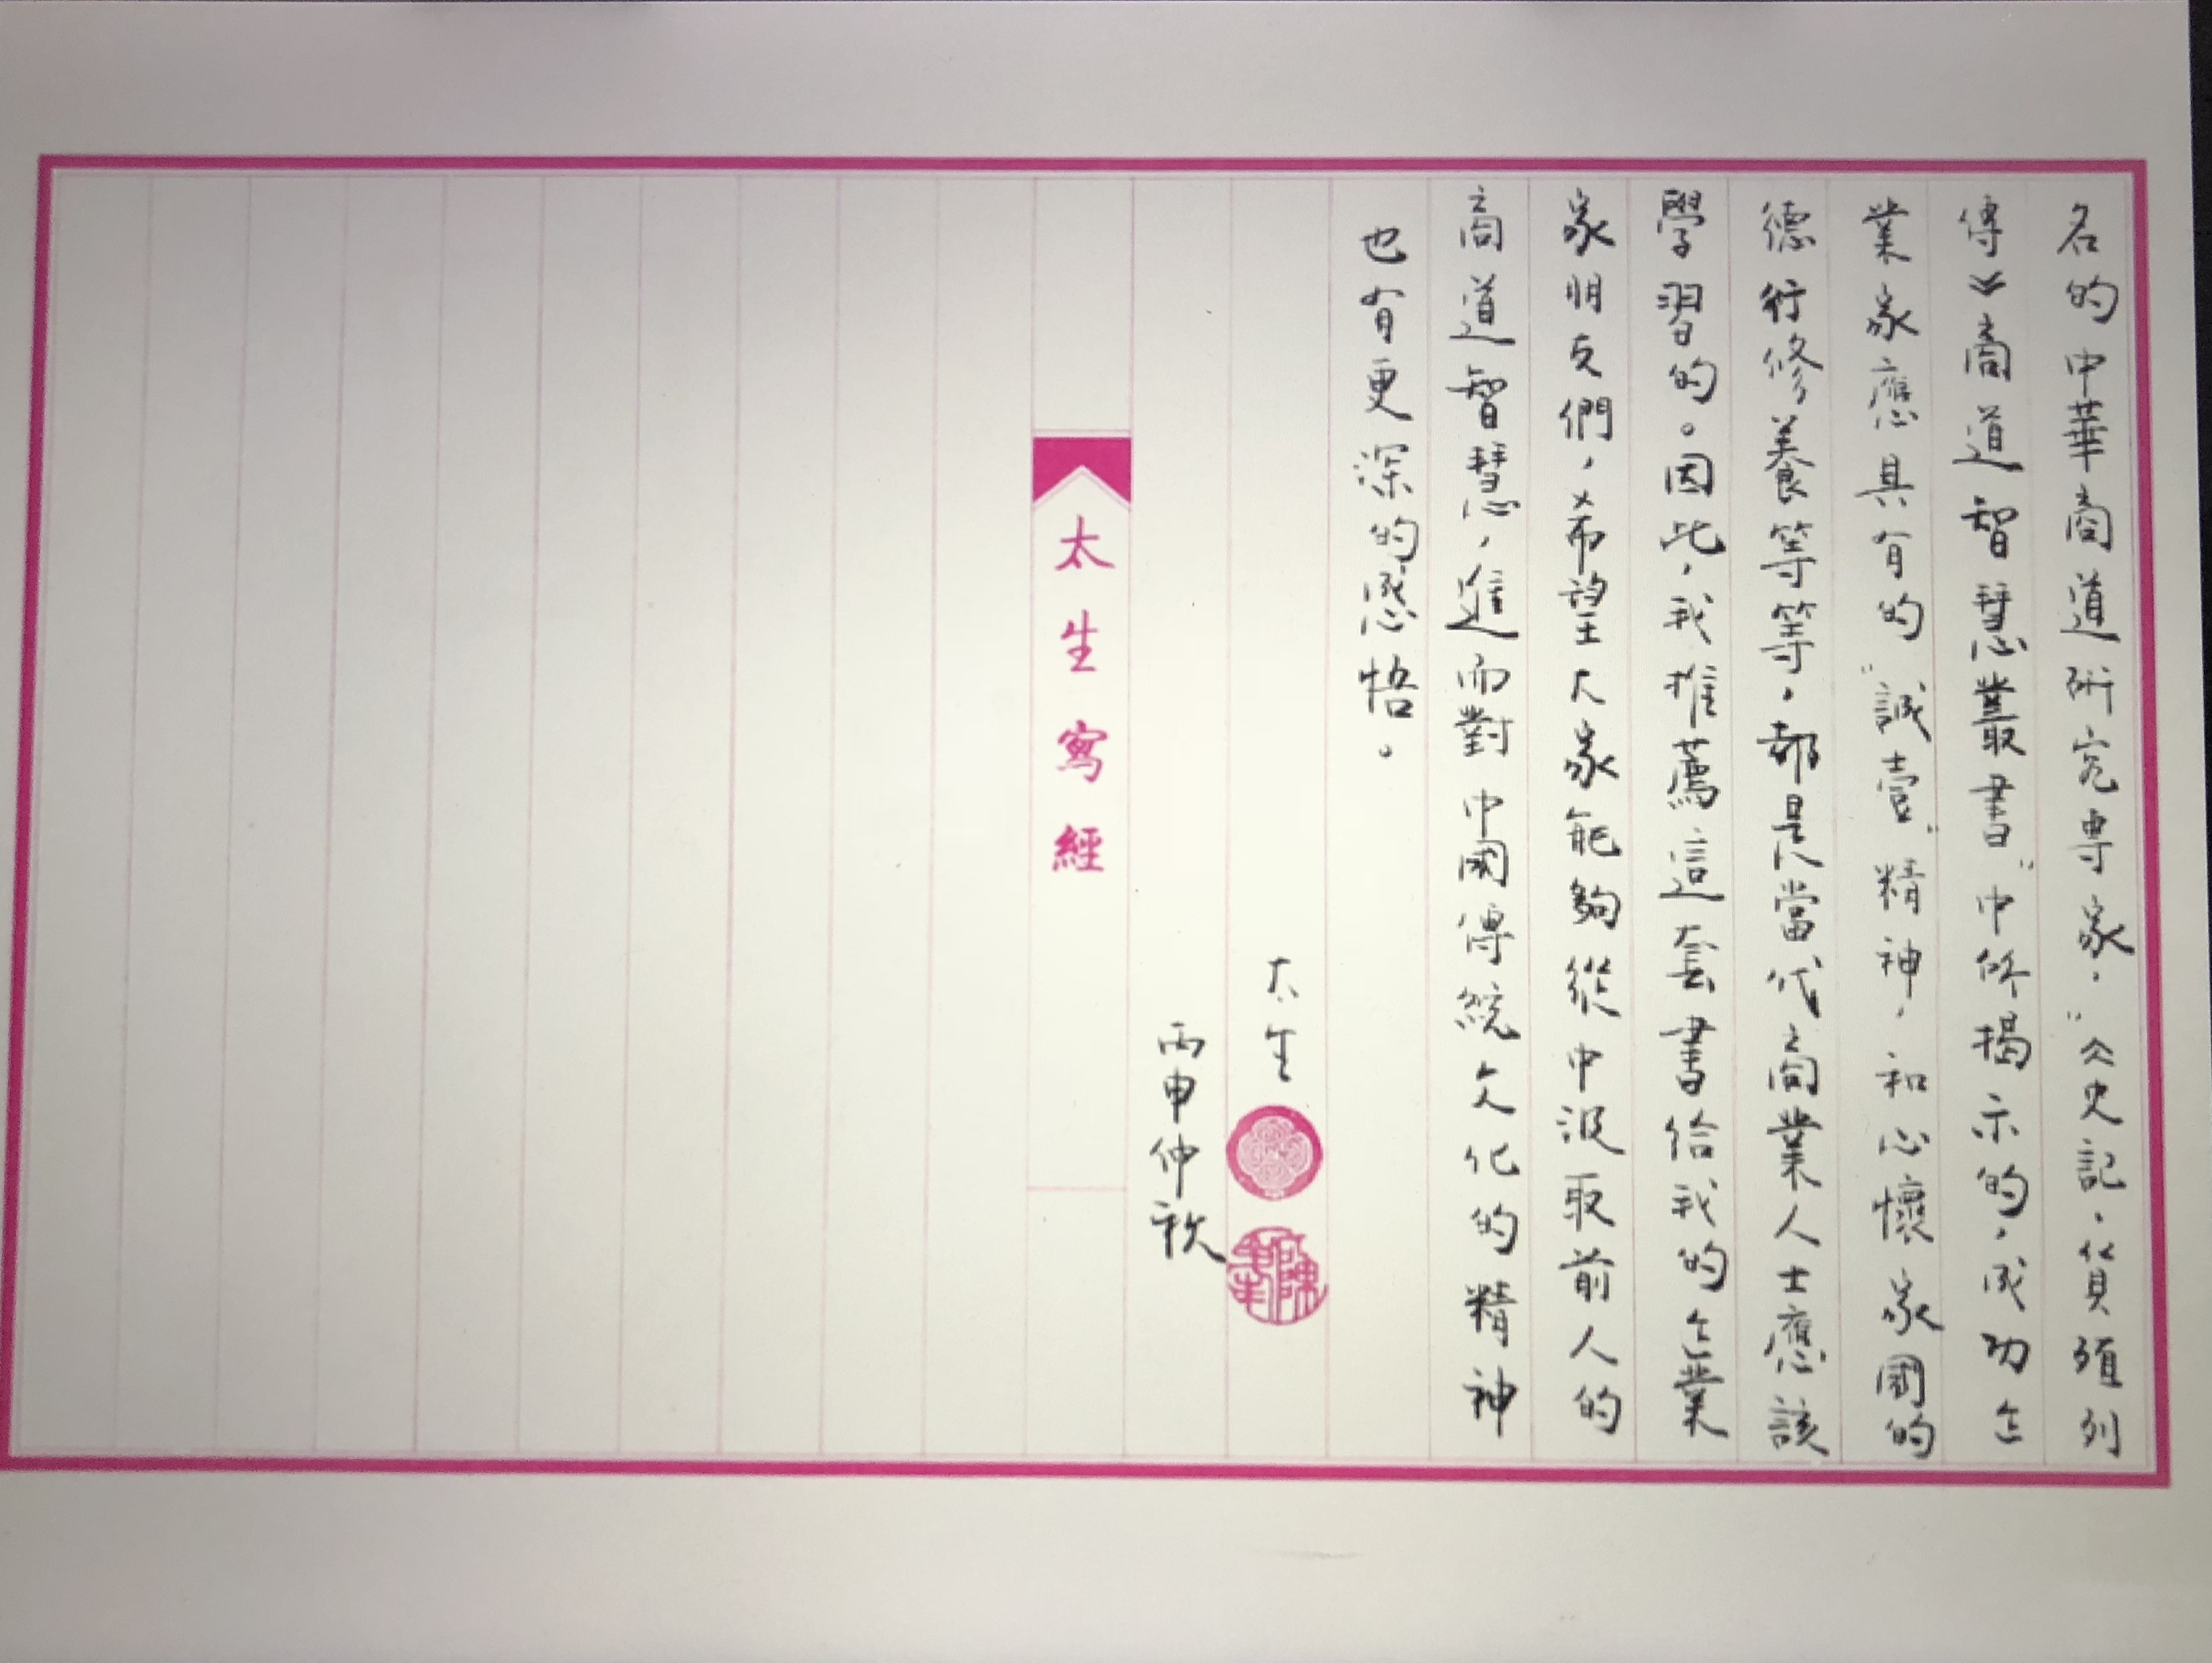 名的中華商道研究專家，“《史記·貨殖列
傳》商道智慧叢書”中所揭示的，成功企
業家應具有的“誠壹”精神，和心懷家國的
德行修養等等，都是當代商業人士應該
學習的。因此，我推薦這套書給我的企業
家朋友們，希望大家能夠從中汲取前人的
商道智慧，進而對中國傳統文化的精神
也有更深的感悟。
太生
丙申仲秋
太生寫經